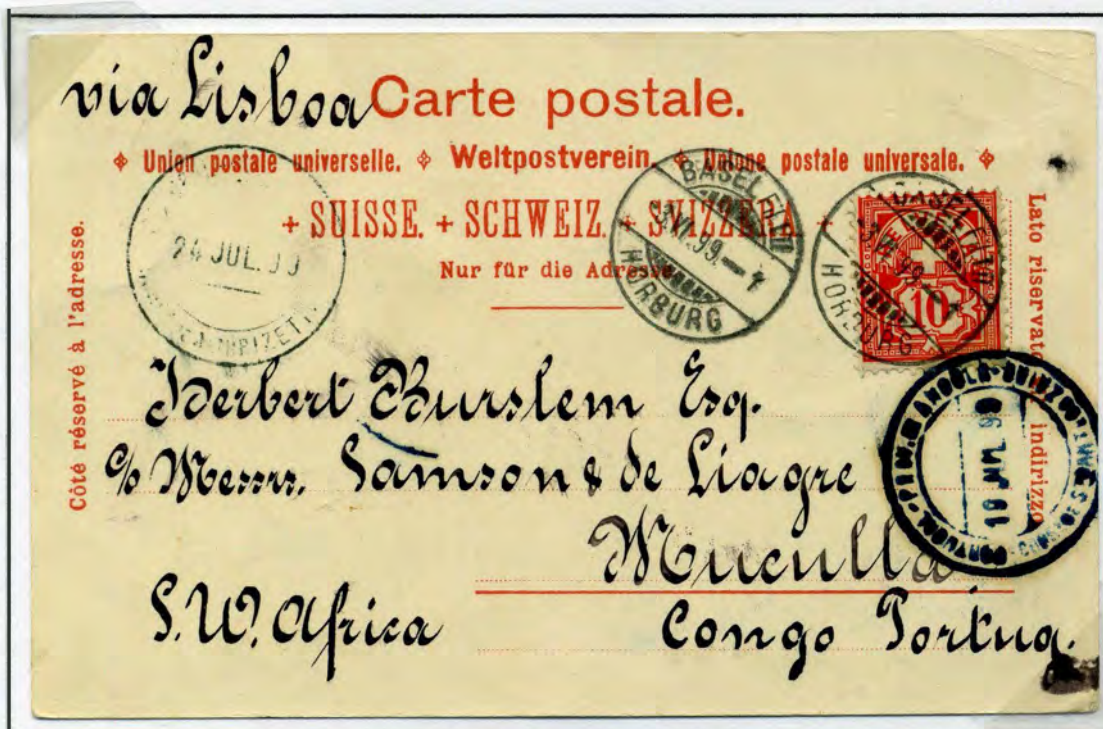 via Lisboa Carte postale.
Union postale universelle. Weltpostverein. Unione postale universale.
+ SUISSE. + SCHWEIZ. + SVIZZERA +
Nur für die Adresse
Côté réservé à l'adresse.
Lato riservato indirizzo
24 JUL.
BASEL
VI.99.
HORBURG
BASEL
HORBURG
10
PORTUGAL ANGOLA
10 99
Herbert Burslem Esq.
c/o Messrs. Samson & de Liagre
Muculla
S.W. Africa Congo Portug.